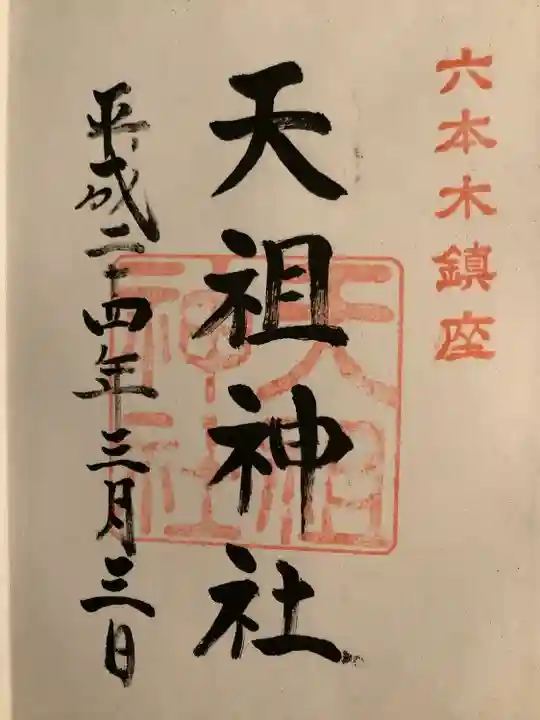 六本木鎮座
天祖神社
天祖神社
平成二十四年三月三日